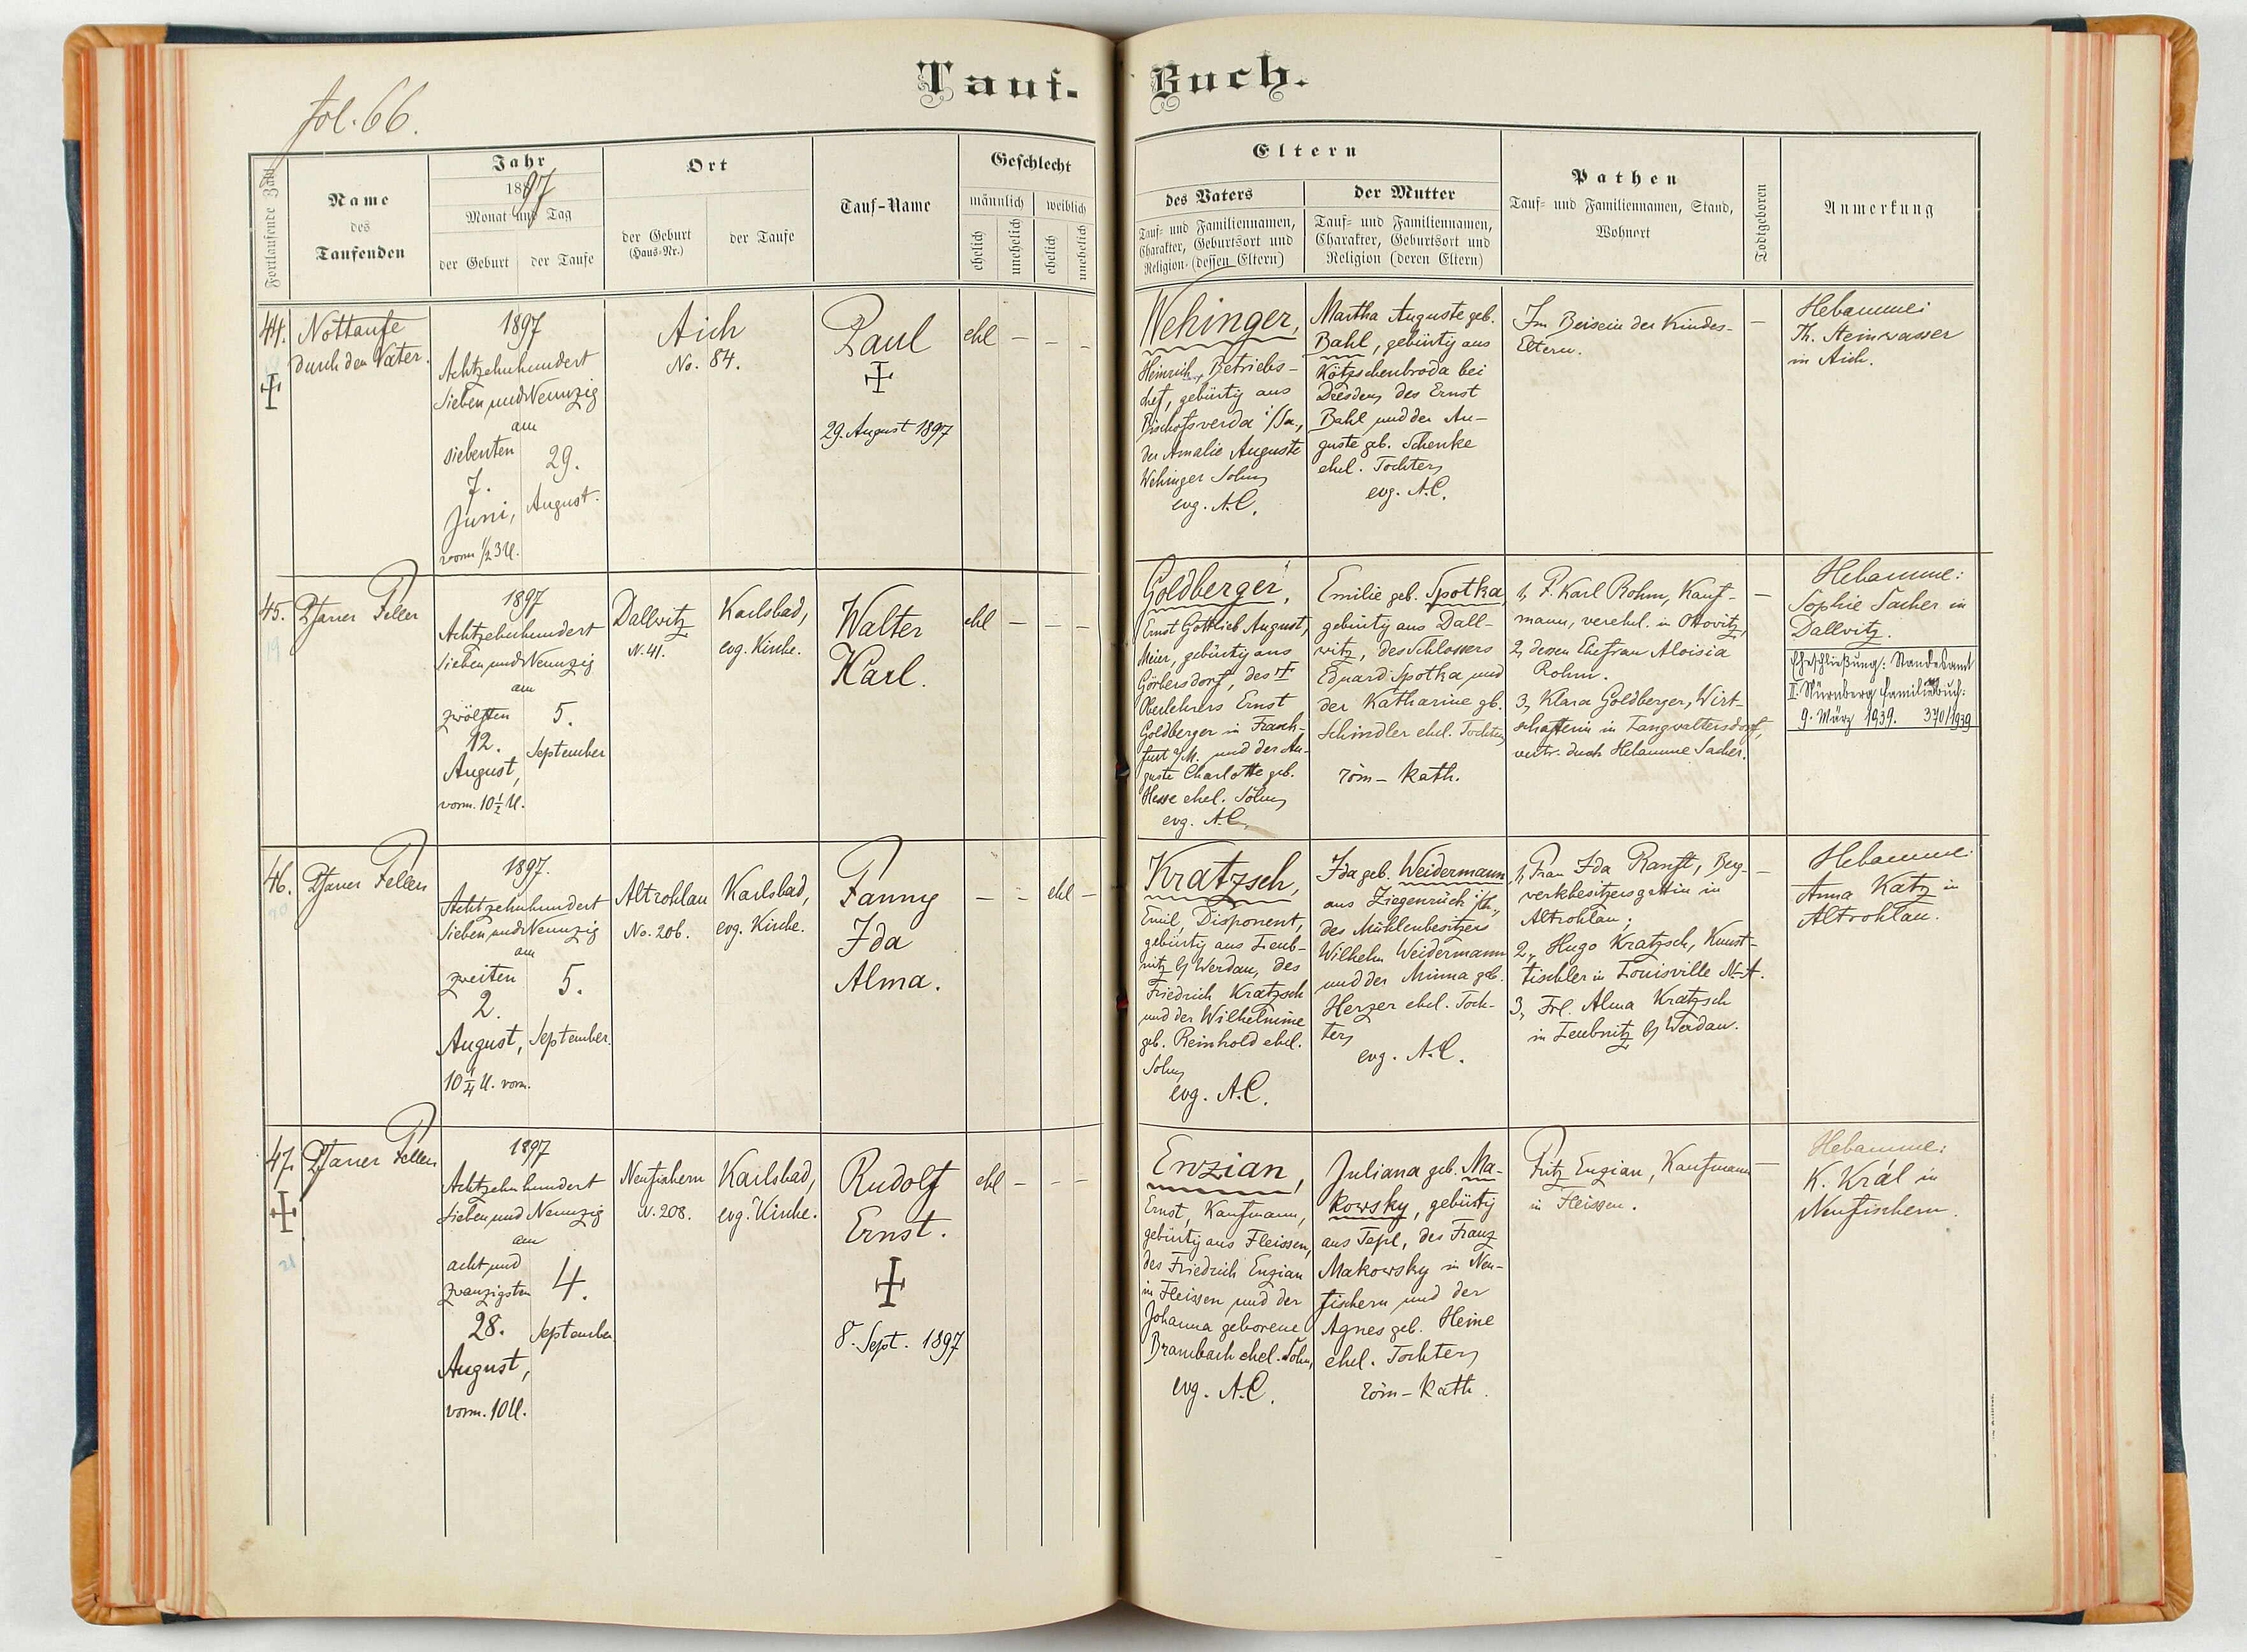 fol. 66.
Tauf-Buch.
Fortlaufende Zahl
Name
des
Taufenden
Jahr
1897
Monat und Tag
der Geburt
der Taufe
Ort
der Geburt
(Haus-Nr.)
der Taufe
Tauf-Name
Geschlecht
männlich
weiblich
ehelich
unehelich
ehelich
unehelich
Eltern
des Vaters
Tauf- und Familiennamen,
Charakter, Geburtsort und
Religion (dessen Eltern)
der Mutter
Tauf- und Familiennamen,
Charakter, Geburtsort und
Religion (deren Eltern)
Pathen
Tauf- und Familiennamen, Stand,
Wohnort
Todtgeboren
Anmerkung
44.
Nottaufe
durch den Vater.
1897
Achtzehnhundert
Sieben und Neunzig
am
siebenten
7.
Juni,
vorm ½3 U.
29.
August.
Aich
No. 84.
Paul
29. August 1897
ehl – – –
Wehinger,
Heinrich, Betriebs-
chef, gebürtig aus
Bischofswerda i/Sa.,
der Amalie Auguste
Wehinger Sohn,
evg. A.C.
Martha Auguste geb.
Bahl, gebürtig aus
Kötzschenbroda bei
Dresden, des Ernst
Bahl und der Au-
guste geb. Schenke
ehel. Tochter,
evg. A.C.
Im Beisein der Kindes-
Eltern.
–
Hebamme:
Th. Steinwasser
in Aich.
45.
19
Pfarrer Feller
1897
Achtzehnhundert
Sieben und Neunzig
am
zwölften
12.
August,
vorm. 10½ U.
5.
September
Dallwitz
N. 41.
Karlsbad,
evg. Kirche.
Walter
Karl.
ehl – – –
Goldberger,
Ernst Gottlieb August,
Meier, gebürtig aus
Görbersdorf, des †
Oberlehrers Ernst
Goldberger in Frank-
furt a/M. und der Au-
guste Charlotte geb.
Hesse ehel. Sohn,
evg. A.C.
Emilie geb. Spotka,
gebürtig aus Dall-
witz, des Schlossers
Eduard Spotka und
der Katharine gb.
Schindler ehel. Tochter,
röm-kath.
1, F. Karl Rohm, Kauf-
mann, verehel. in Ottowitz,
2, dessen Ehefrau Aloisia
Rohm.
3, Klara Goldberger, Wirt-
schafterin in Langwaltersdorf,
vertr. durch Hebamme Sacher.
–
Hebamme:
Sophie Sacher in
Dallwitz.
Eheschließung: Standesamt
II. Nürnberg Familienbuch:
9. März 1939. 370/1939
46.
20
Pfarrer Feller
1897.
Achtzehnhundert
Sieben und Neunzig
am
zweiten
2.
August,
10¼ U. vorm.
5.
September.
Altrohlau
No. 206.
Karlsbad,
evg. Kirche.
Fanny
Ida
Alma.
– – ehl –
Kratzsch,
Emil, Disponent,
gebürtig aus Leub-
nitz b/ Werdau, des
Friedrich Kratzsch
und der Wilhelmine
geb. Reinhold ehel.
Sohn,
evg. A.C.
Ida geb. Weidermann,
aus Ziegenrück i/Th.,
des Mühlenbesitzers
Wilhelm Weidermann
und der Minna geb.
Herzer ehel. Toch-
ter,
evg. A.C.
1, Frau Ida Ranft, Berg-
werkbesitzersgattin in
Altrohlau;
2, Hugo Kratzsch, Kunst-
tischler in Louisville N.-A.
3, Frl. Alma Kratzsch
in Leubnitz b/ Werdau.
–
Hebamme:
Anna Katz in
Altrohlau.
47.
21
Pfarrer Feller
1897
Achtzehnhundert
Sieben und Neunzig
am
acht und
zwanzigsten
28.
August,
vorm. 10 U.
4.
September
Neufischern
N. 208.
Karlsbad,
evg. Kirche.
Rudolf
Ernst.
8. Sept. 1897
ehl – – –
Enzian,
Ernst, Kaufmann,
gebürtig aus Fleissen,
des Friedrich Enzian
in Fleissen und der
Johanna geborene
Brambach ehel. Sohn,
evg. A.C.
Juliana geb. Ma-
kowsky, gebürtig
aus Tepl, des Franz
Makowsky in Neu-
fischern und der
Agnes geb. Heine
ehel. Tochter,
röm-kath.
Fritz Enzian, Kaufmann
in Fleissen.
–
Hebamme:
K. Král in
Neufischern.